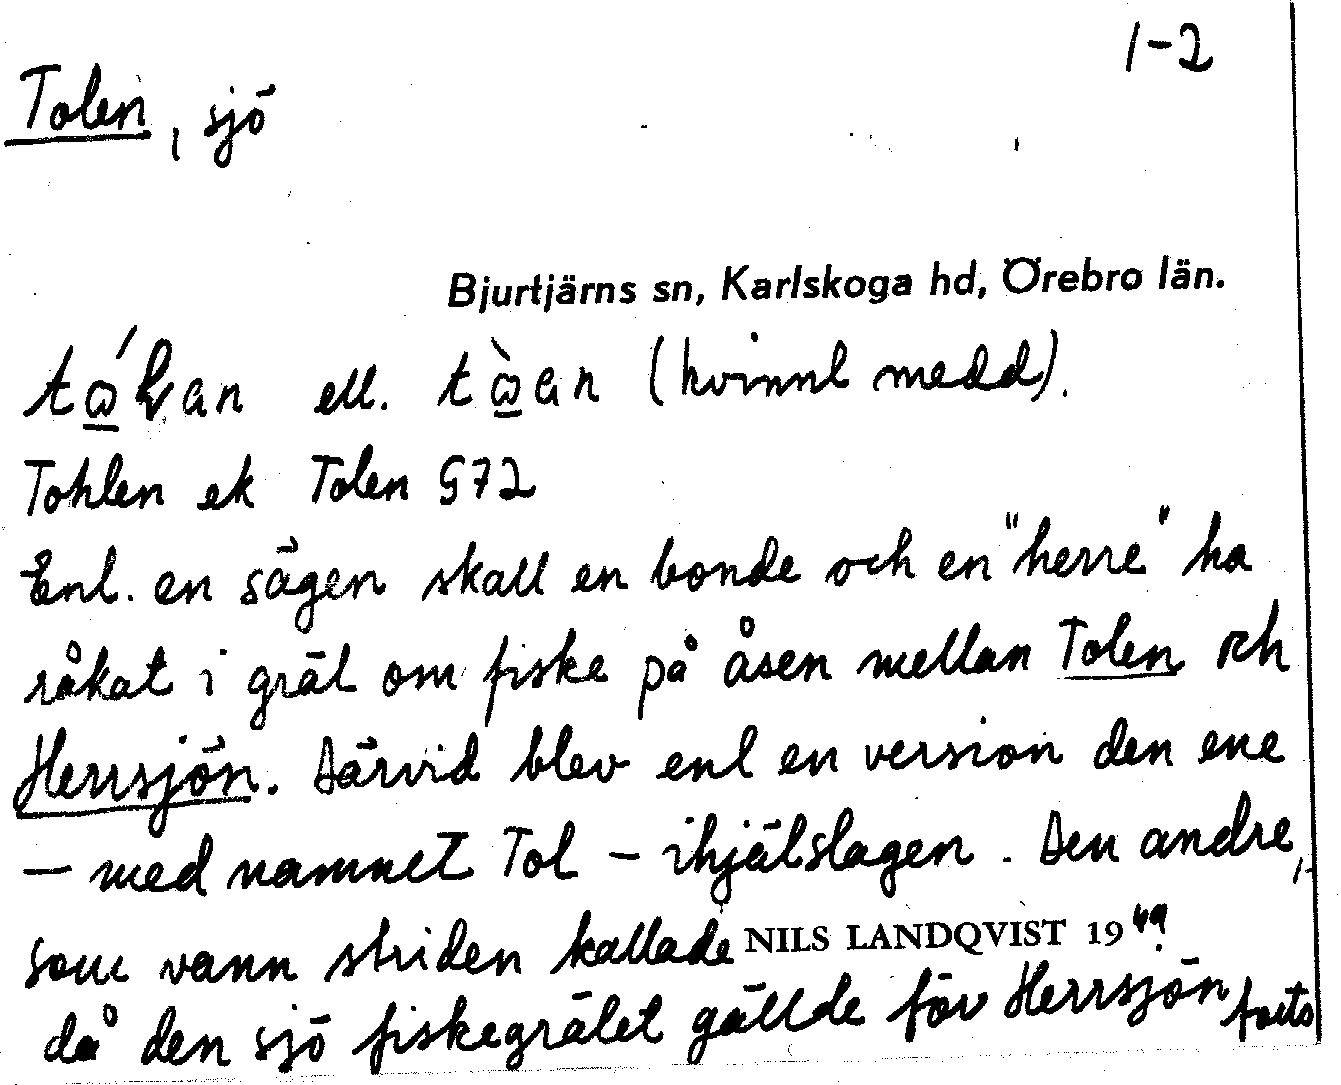 1-2
Tolen, sjö
Bjurtjärns sn, Karlskoga hd, Örebro län.
ell. (kvinnl medd).
Tohlen ek Tolen G72
Enl. en sägen skall en bonde och en "herre" ha
råkat i gräl om fiske på åsen mellan Tolen och
Herrsjön. Därvid blev enl en version den ene
— med namnet Tol – ihjälslagen. Den andre,
som vann striden kallade NILS LANDQVIST 1949
då den sjö fiskegrälet gällde för Herrsjön forts